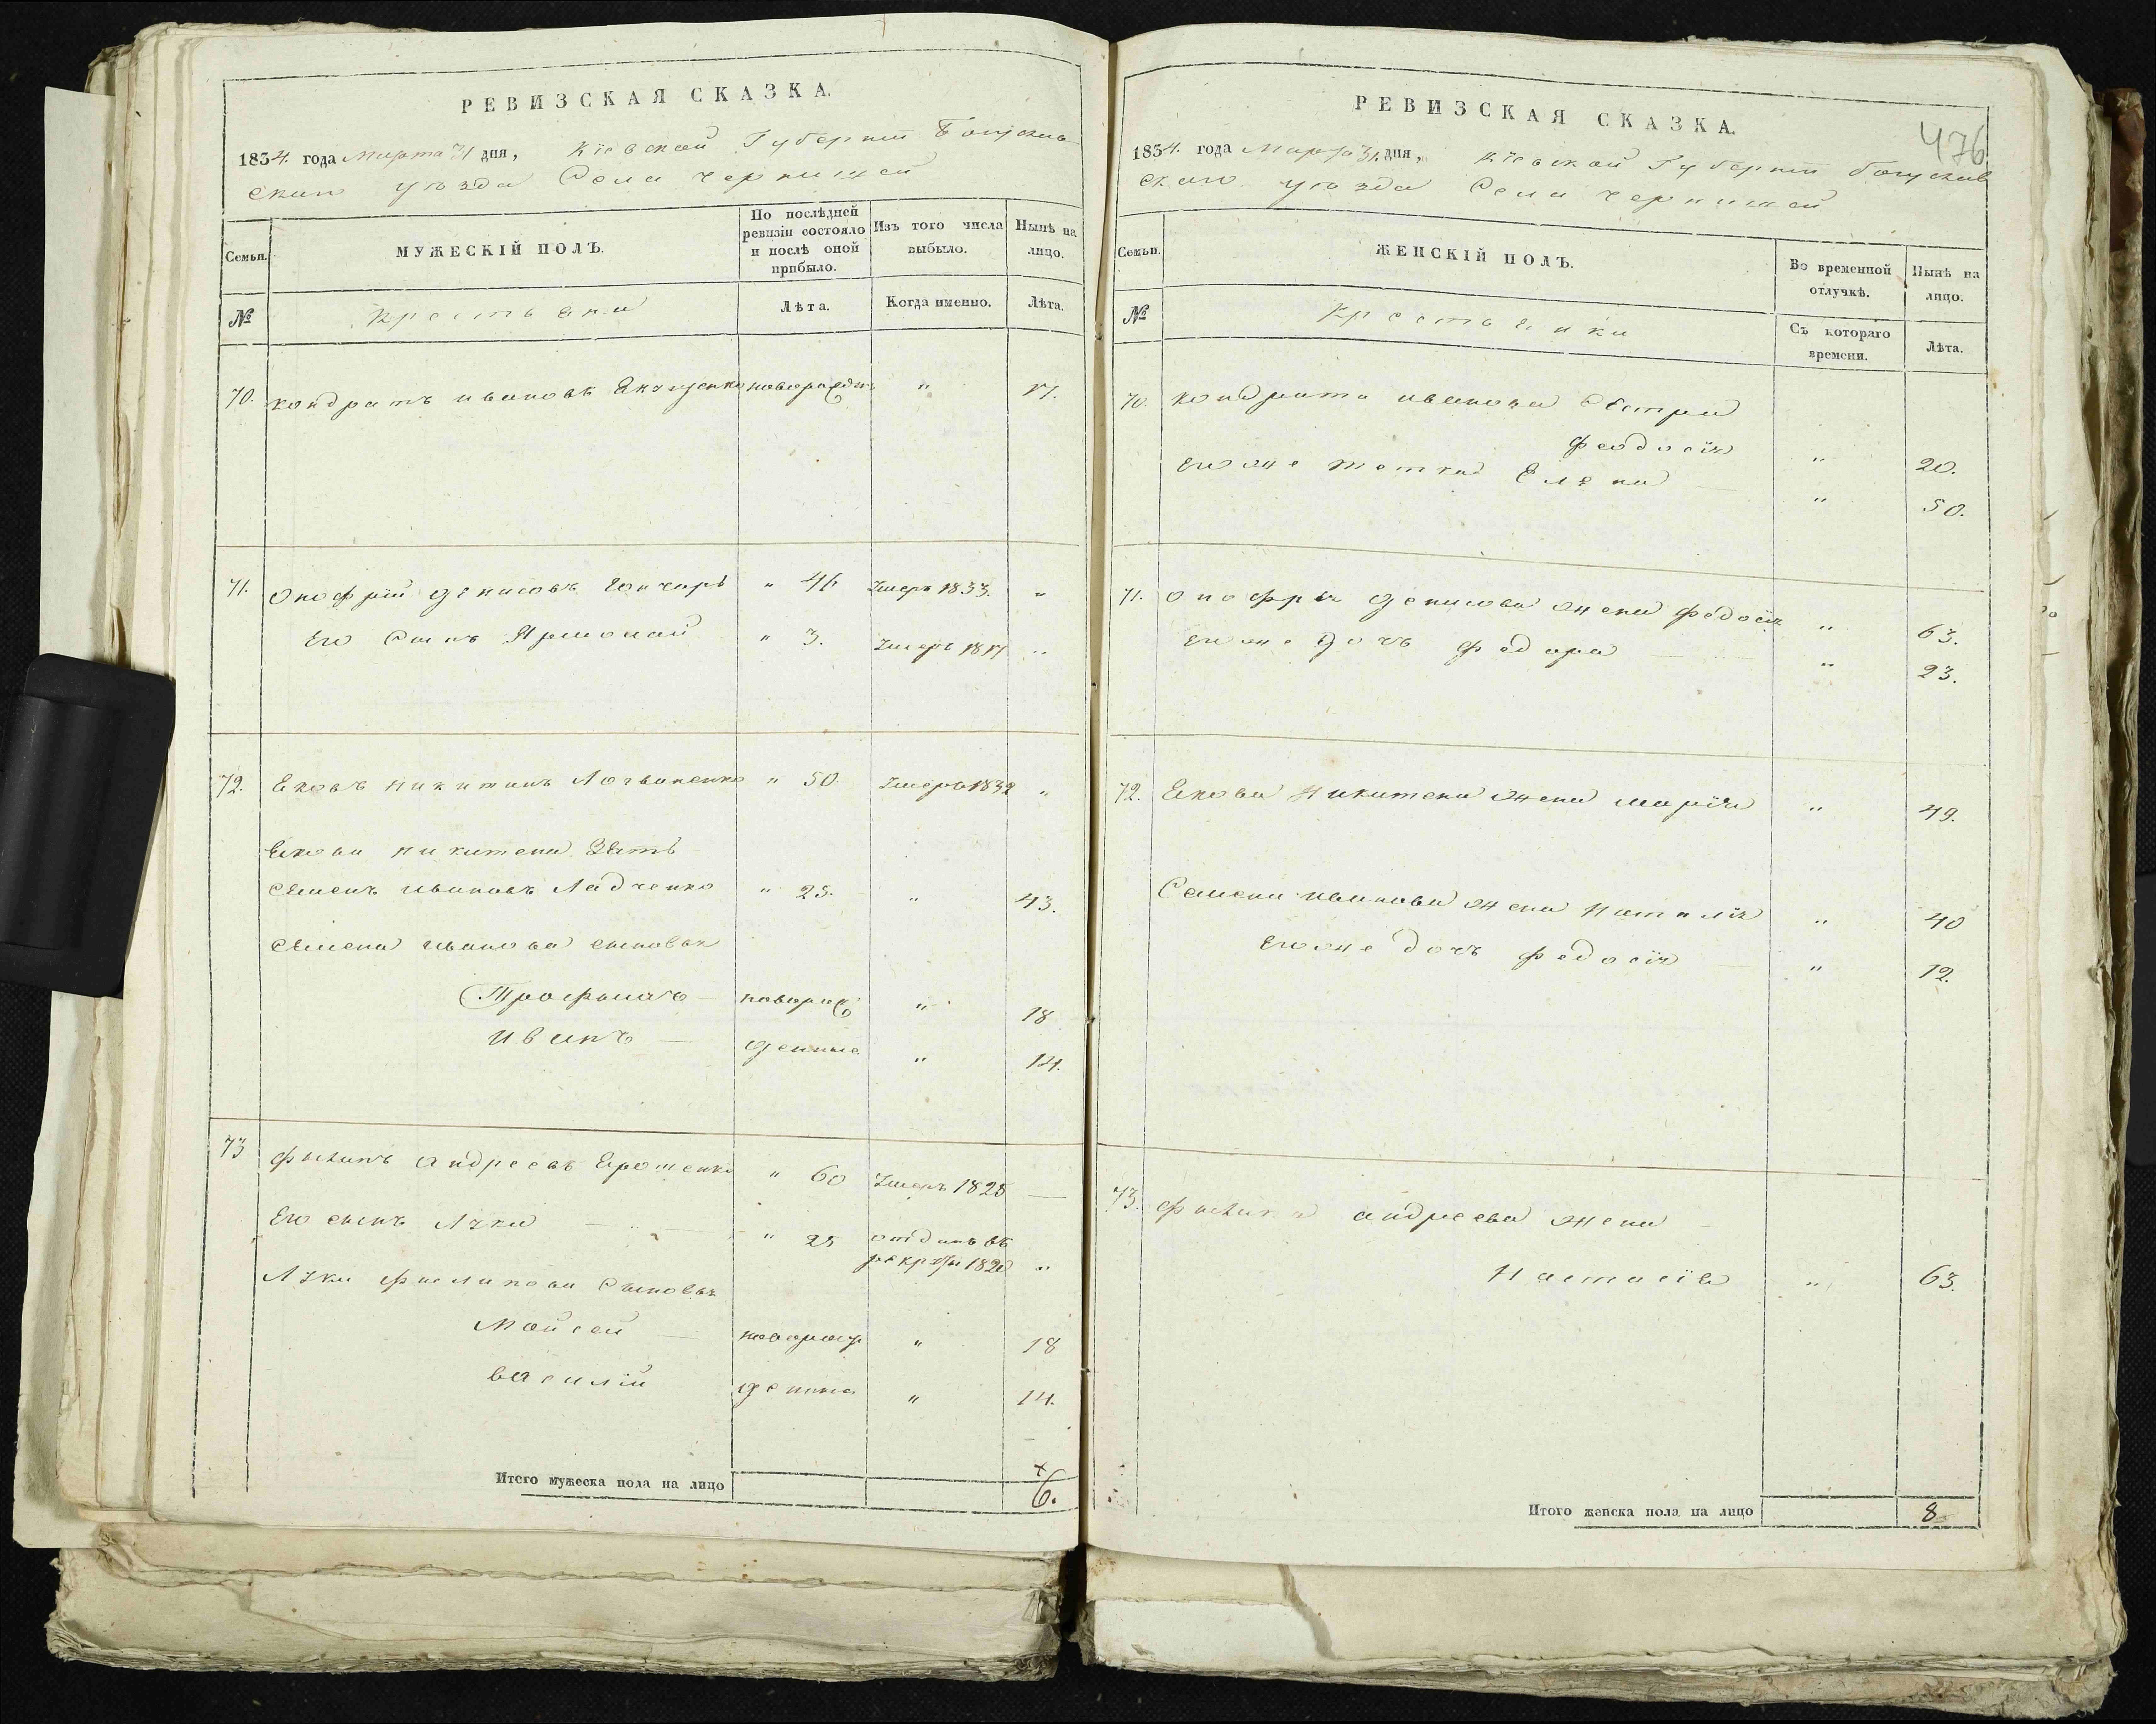 РЕВИЗСКАЯ СКАЗКА.
1834. года Марта 31 дня, Кіевской Губерніи Богуслав
скаго уѣзда Села Чернишей
Семьи.
МУЖЕСКІЙ ПОЛЪ.
По послѣдней ревизіи состояло и послѣ оной прибыло.
Изъ того числа выбыло.
Нынѣ на лицо.
№
Крестьяни
Лѣта.
Когда именно.
Лѣта.
70. Кондратъ ивановъ новорожден " 17.
71. Онофрій Денисовъ Гончаръ " 46 Умеръ 1833. "
Его Сынъ " 3. Умеръ 1817 "
72. Яковъ Никитинъ " 50. Умеръ 1832 "
Якова никитена Зять
Семенъ ивановъ Ладченко " 25. " 43.
Семена иванова сыновья
Трофимъ — новорож " 18
иванъ — денные " 14.
73 Филипъ андреевъ Ярошенко " 60 Умеръ 1825 —
Его сынъ Лука — " 25 отданъ въ
рекруты 1820 "
Луки филипова Сыновья
Мойсей — новорож " 18
василій денные " 14.
Итого мужеска пола на лицо 6.
РЕВИЗСКАЯ СКАЗКА.
476
1834. года Марта 31. дня, Кіевской Губерніи Богуслав
скаго уѣзда Села Чернишей
Семьи.
ЖЕНСКІЙ ПОЛЪ.
Во временной отлучкѣ.
Нынѣ на лицо.
№
Крестьянки
Съ котораго времени.
Лѣта.
70. Кондрата иванова Сестра
Феодосія " 20.
Его же тетка Елена — " 50.
71. онофрія Денисова жена федосія " 63.
Его же Дочь федора — " 23.
72. Якова Никитена жена марія " 49.
Семена иванова жена наталія " 40
Его же дочь федосія — " 12.
73. Филипа андреева жена —
Настасія " 63.
Итого женска пола на лицо 8